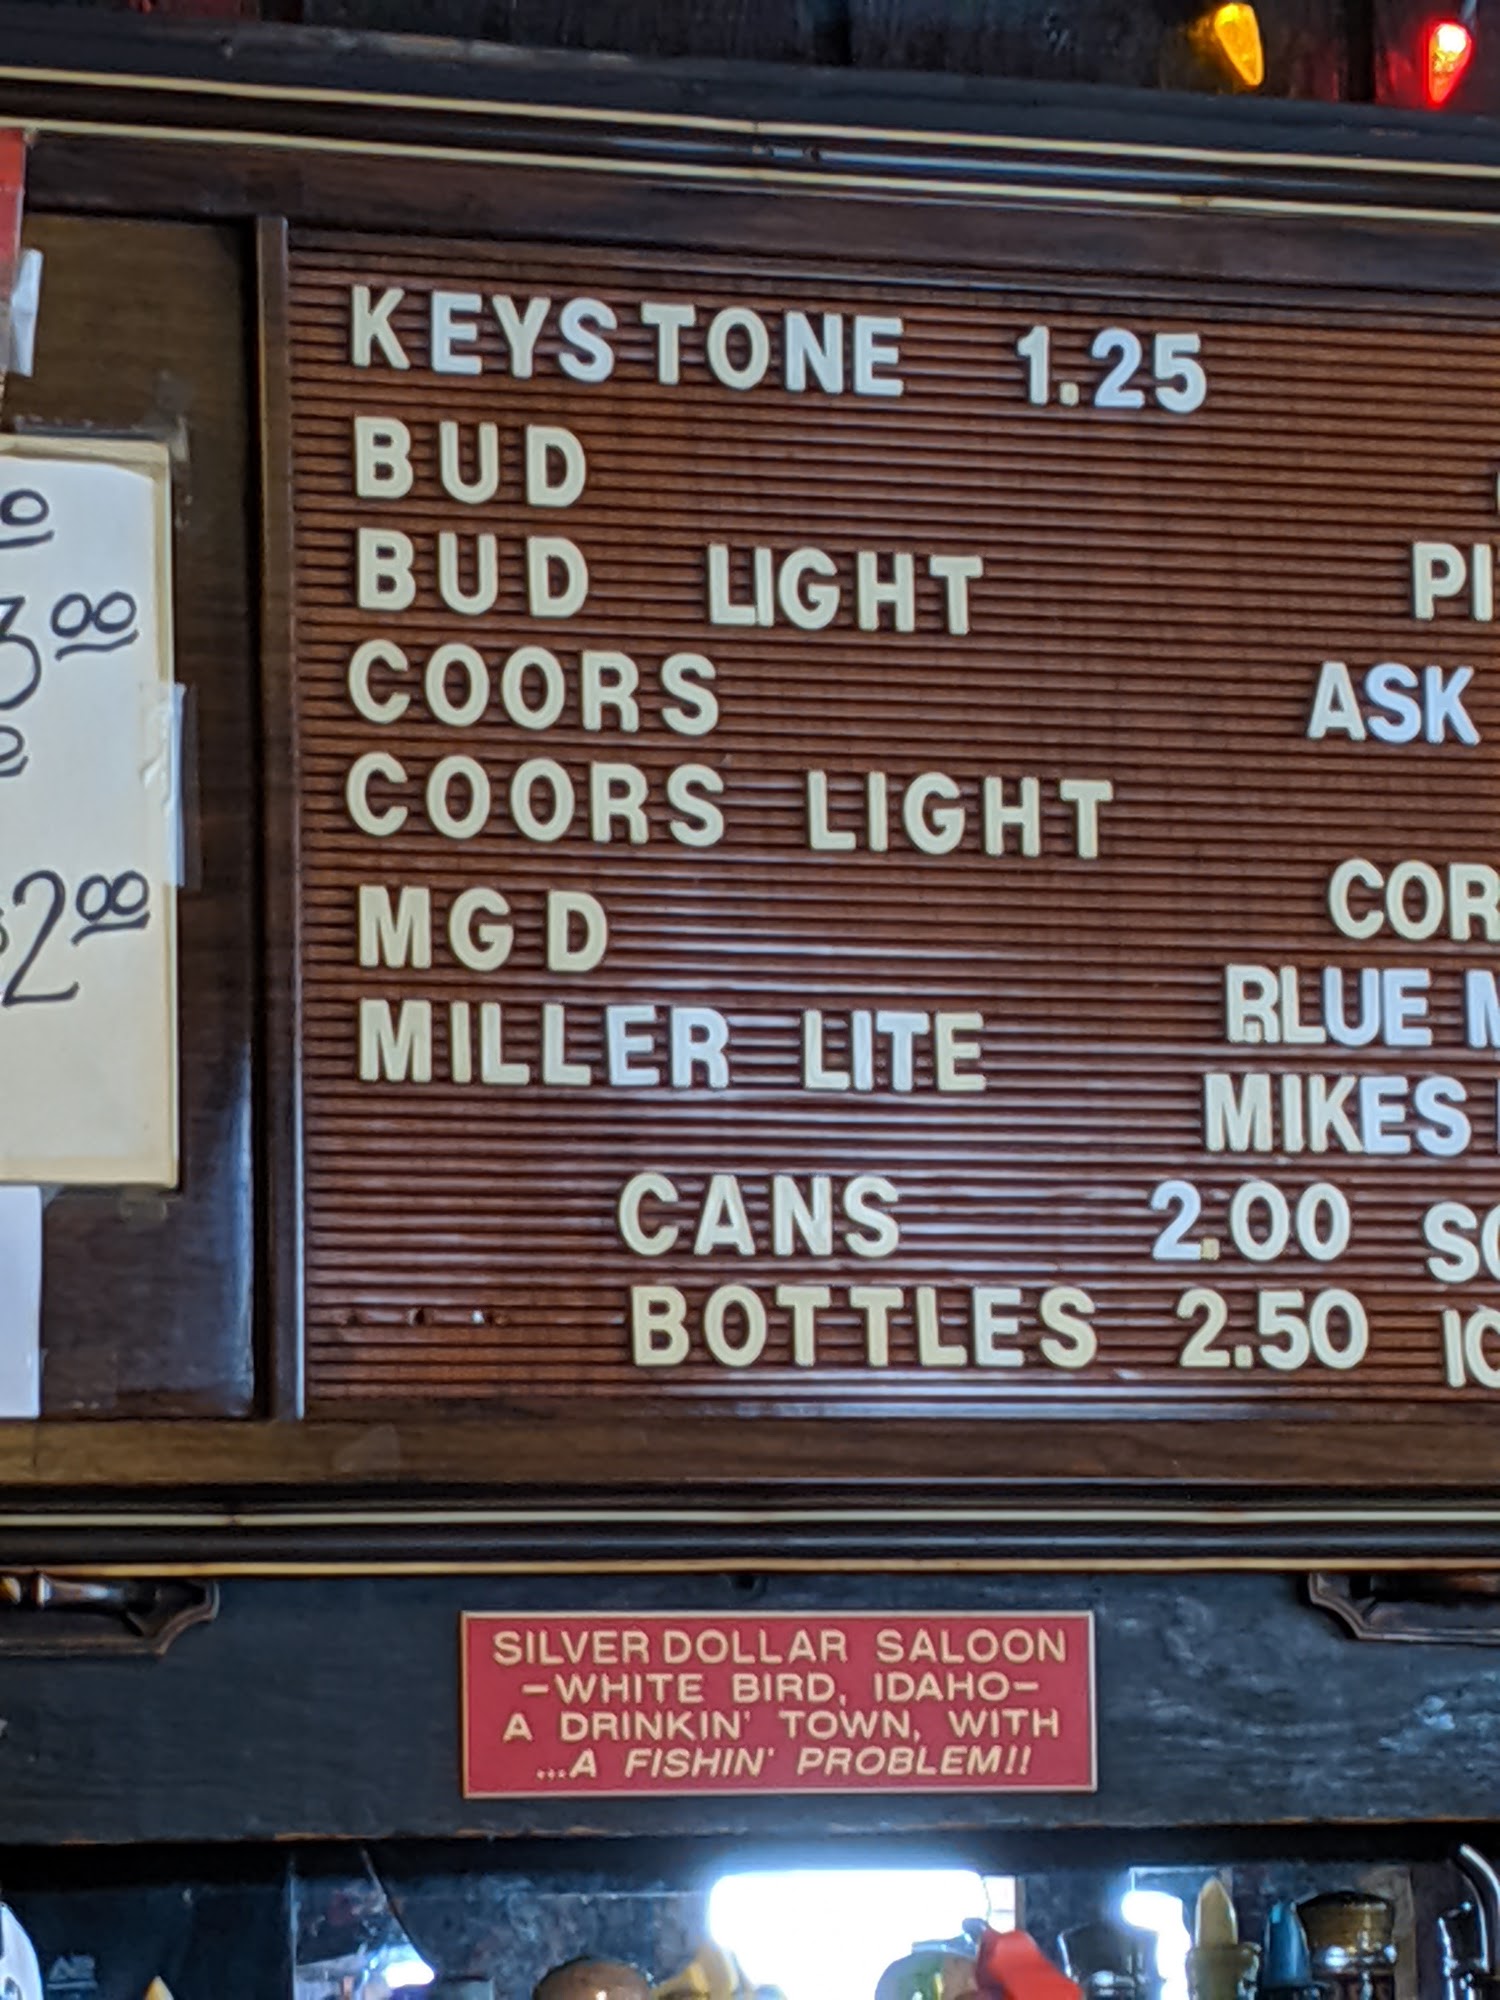 KEYSTONE 1.25
BUD
BUD LIGHT
COORS
COORS LIGHT
MGD
MILLER LITE
CANS 2.00
BOTTLES 2.50
PI
ASK
COR
RLUE M
MIKES
SO
IC
00
$2 00
SILVER DOLLAR SALOON
-WHITE BIRD, IDAHO-
A DRINKIN' TOWN, WITH
...A FISHIN' PROBLEM!!